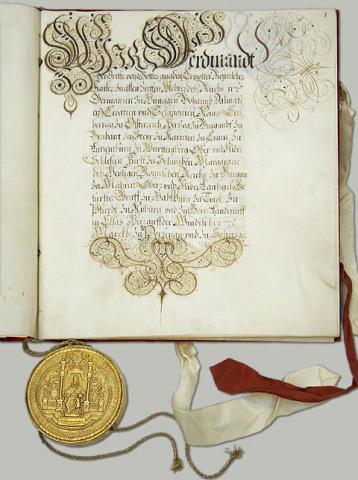 Wir Ferdinandt
der Dritte von Gottes gnaden Erwölter Römischer
Kaiser zu allen Zeitten Mehrer des Reichs in
Germanien zu Hungern Böhaimb Dalmatien
Croatien und Sclavonien König Ertz
herzog zu Österreich Herzog zu Burgundt zu
Brabant zu Steyr zu Kärnten zu Crain zu
Lutzenburg zu Württemberg Ober und Nider
Schlesien Fürst zu Schwaben Marggrave
des Heyligen Römischen Reichs zu Burgau
zu Mähren Ober und Nider Laußnitz Ge
fürster Graff zu Habspurg zu Tyrol zu
Pfierdt zu Kyburg und zu Görtz Landtgraff
in Elsas Herr auff der Windischen
Marckh zu Portenau und zu Salins